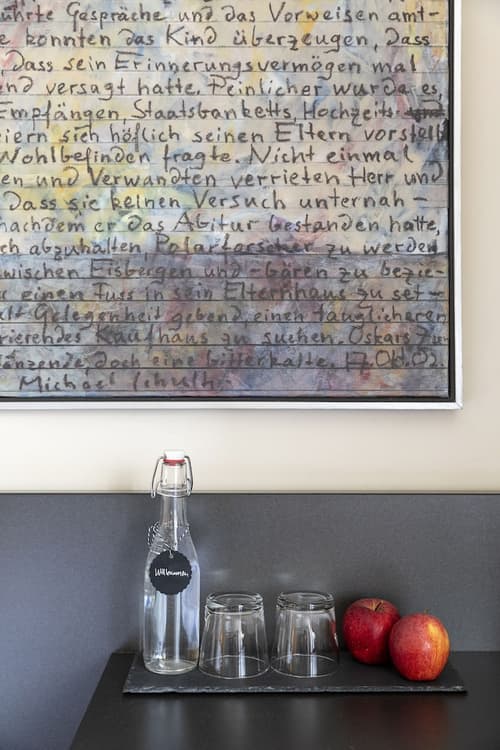 ührte Gespräche und das Vorweisen amt-
e konnten das Kind überzeugen, dass
, dass sein Erinnerungsvermögen mal
nd versagt hatte. Peinlicher wurde es,
Empfängen, Staatsbanketts, Hochzeits
eiern sich höflich seinen Eltern vorstell
Wohlbefinden fragte. Nicht einmal
en und Verwandten verrieten Herr und
Dass sie keinen Versuch unternah-
nachdem er das Abitur bestanden hatte,
ch abzuhalten, Polarforscher zu werden
wischen Eisbergen und -bären zu bezie-
r einen Fuss in sein Elternhaus zu set-
alt Gelegenheit gebend, einen tauglicheren
rierendes Kaufhaus zu suchen. Oskars
änzende, doch eine bitterkalte. 17. Okt. 02.
Michael
Willkommen